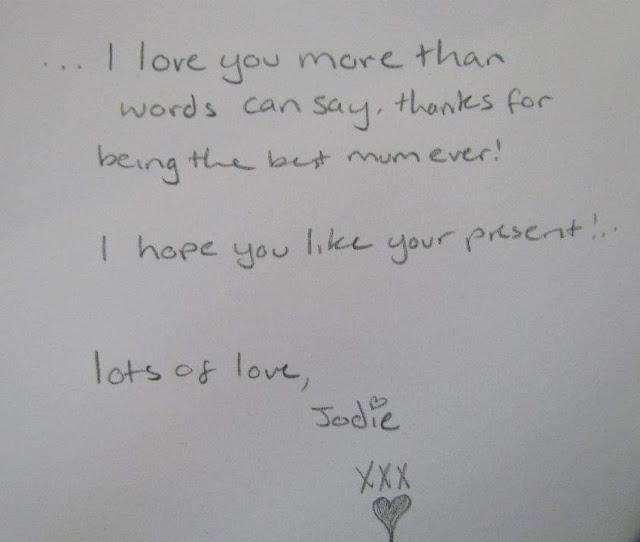 ... I love you more than
words can say, thanks for
being the best mum ever!
I hope you like your present!..
lots of love,
Jodie
xxx